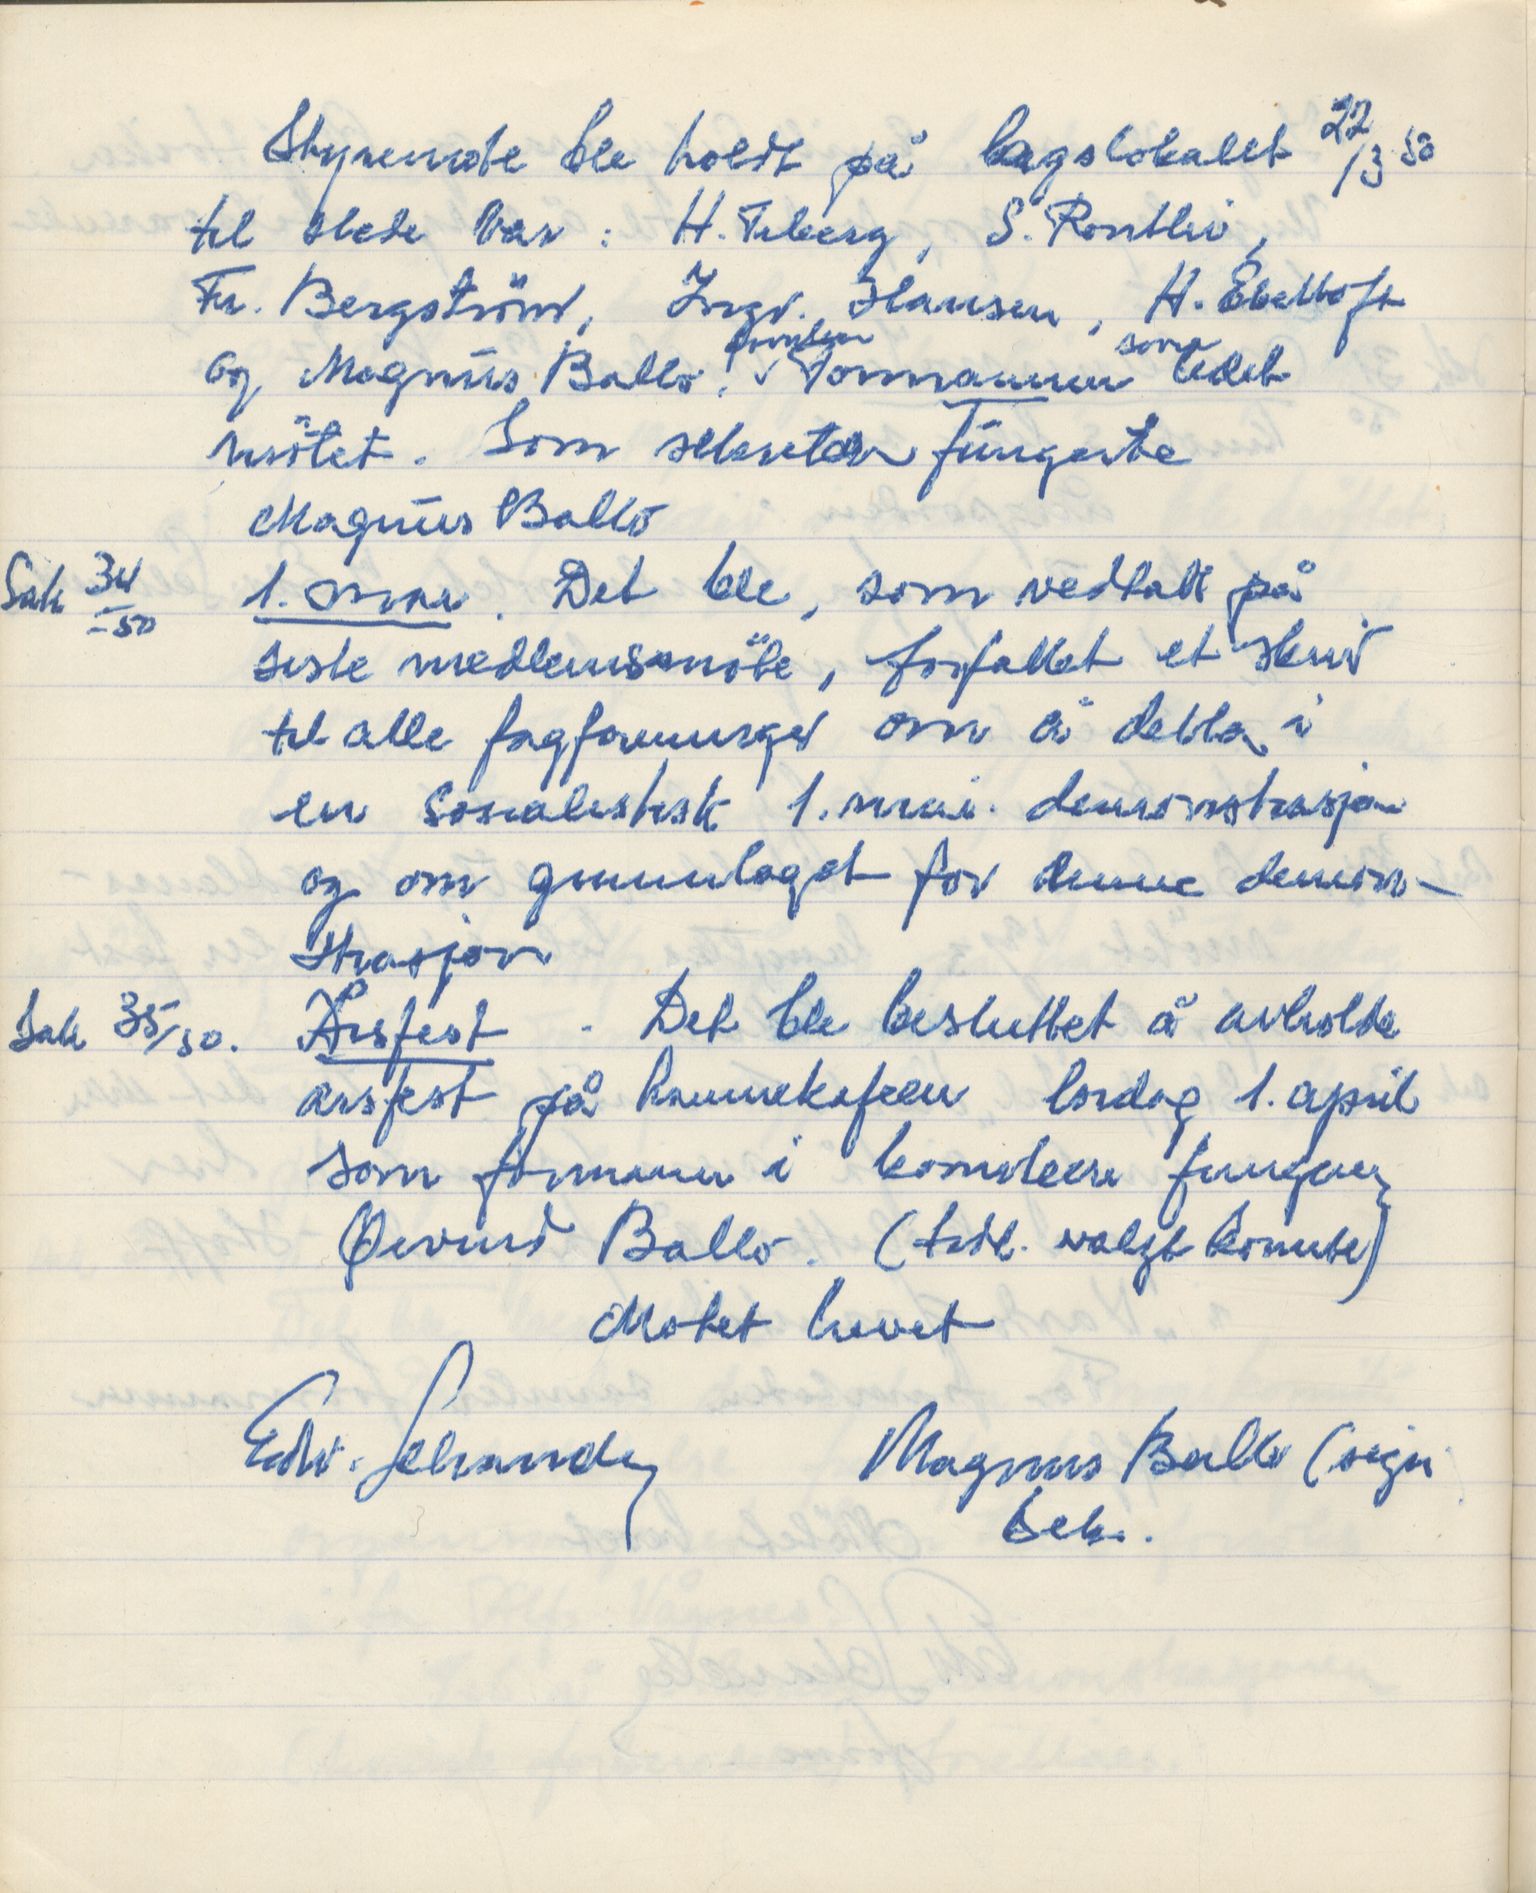 Styremøte ble holdt på lagslokalet 22/3 50
til stede var : H. Friberg, S. Rontliv,
Fr. Bergström, Ingv. Hansen, H. Ebeltoft
og Magnus Ballo, foruten formannen som ledet
møtet. Som sekretær fungerte
Magnus Ballo
Sak 34-50 1. mai. Det ble, som vedtatt på
siste medlemsmøte, forfattet et skriv
til alle fagforeninger om å delta i
en sosialistisk 1. mai. demonstrasjon
og om grunnlaget for denne demon-
strasjon
Sak 35/50. Årsfest. Det ble besluttet å avholde
årsfest på havnekafeen lørdag 1. april
som formann i komiteen fungerer
Øivind Ballo. (tidl. valgt komite)
Møtet hevet
Edv. Magnus Ballo (sign
Sekr.